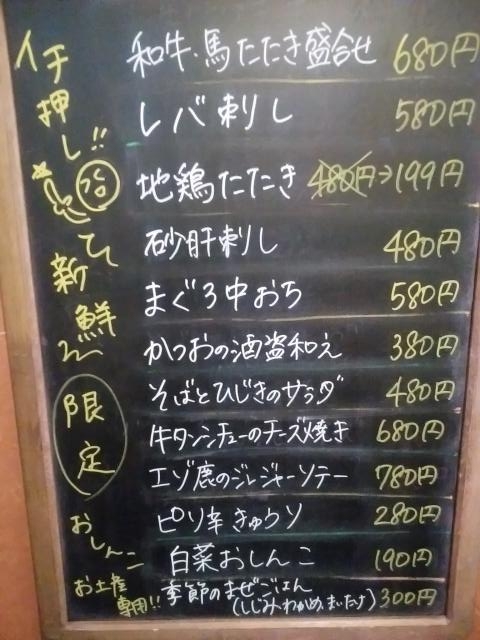 イチ押し!!
和牛・馬たたき盛合せ 680円
レバ刺し 580円
地鶏たたき 480円→199円
砂肝刺し 480円
新鮮
まぐろ中おち 580円
かつおの酒盗和え 380円
限定
そばとひじきのサラダ 480円
牛タンシチューのチーズ焼き 680円
エゾ鹿のジンジャーソテー 780円
おしんこ
ピリ辛きゅうり 280円
白菜おしんこ 190円
お土産専用!!
季節のまぜごはん 300円
(しじみ・わかめ、まいたけ)